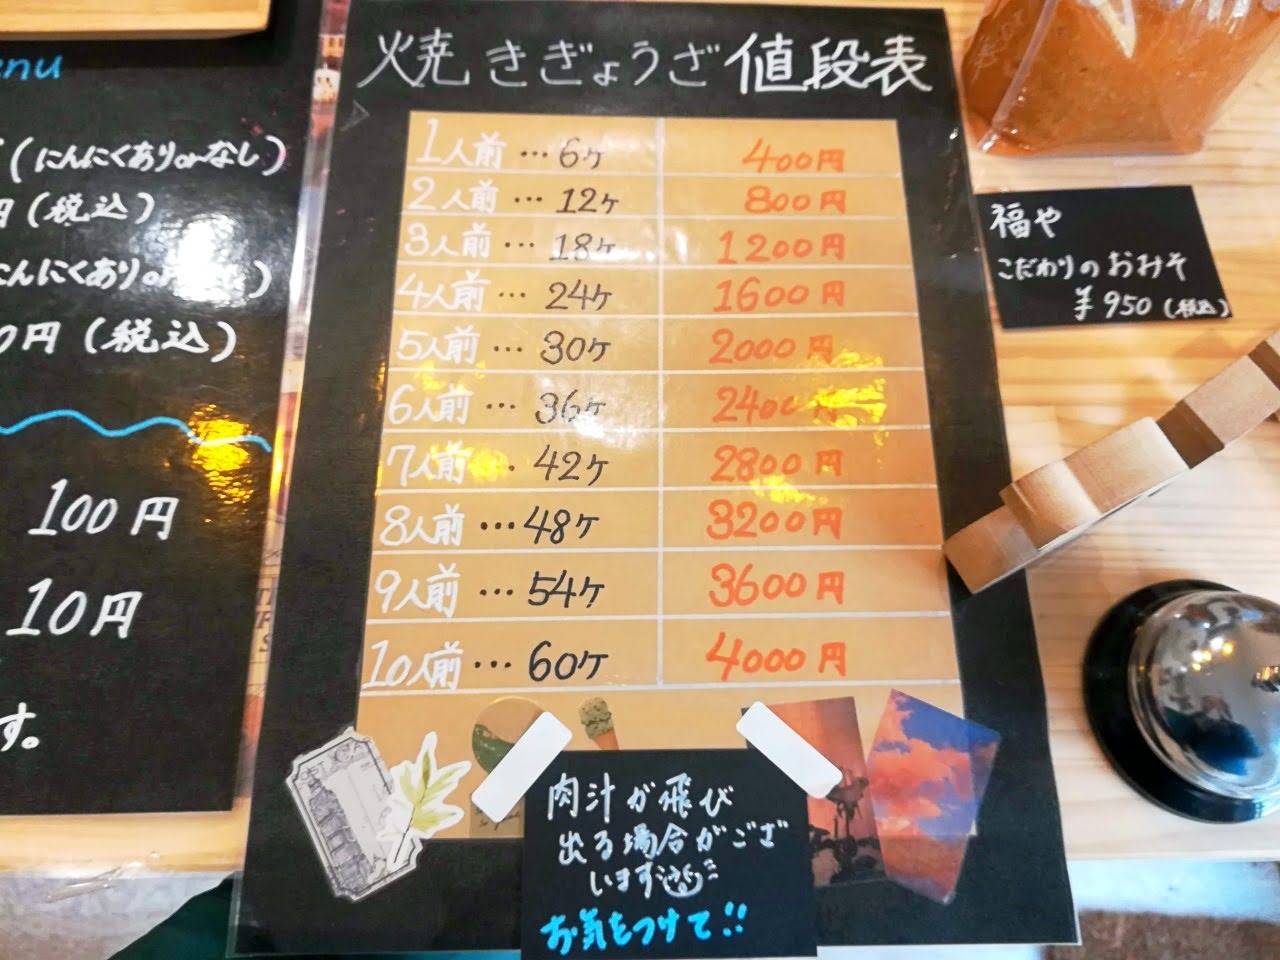 焼きぎょうざ値段表
1人前…6ケ 400円
2人前…12ケ 800円
3人前…18ケ 1200円
4人前…24ケ 1600円
5人前…30ケ 2000円
6人前…36ケ 2400円
7人前…42ケ 2800円
8人前…48ケ 3200円
9人前…54ケ 3600円
10人前…60ケ 4000円
肉汁が飛び
出る場合がござ
います
お気をつけて!!
enu
(にんにくありorなし)
円(税込)
にんにくありor
0円(税込)
100円
10円
す。
福や
こだわりのおみそ
¥950(税込)